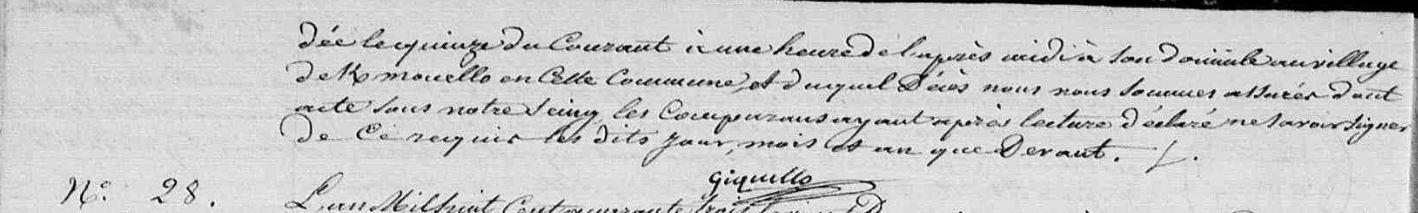 dée le quinze du Courant à une heure de l'après midi à son domicile au village
de Kmouello en Cette Commune, et duquel Décès nous nous sommes assurés dont
acte sous notre Seing, les Comparans ayant après lecture déclaré ne savoir signer
de Ce requis les dits jour, mois et an que Devant. /.
Giquello
N.° 28. L'an Mil huit Cent quarante trois le